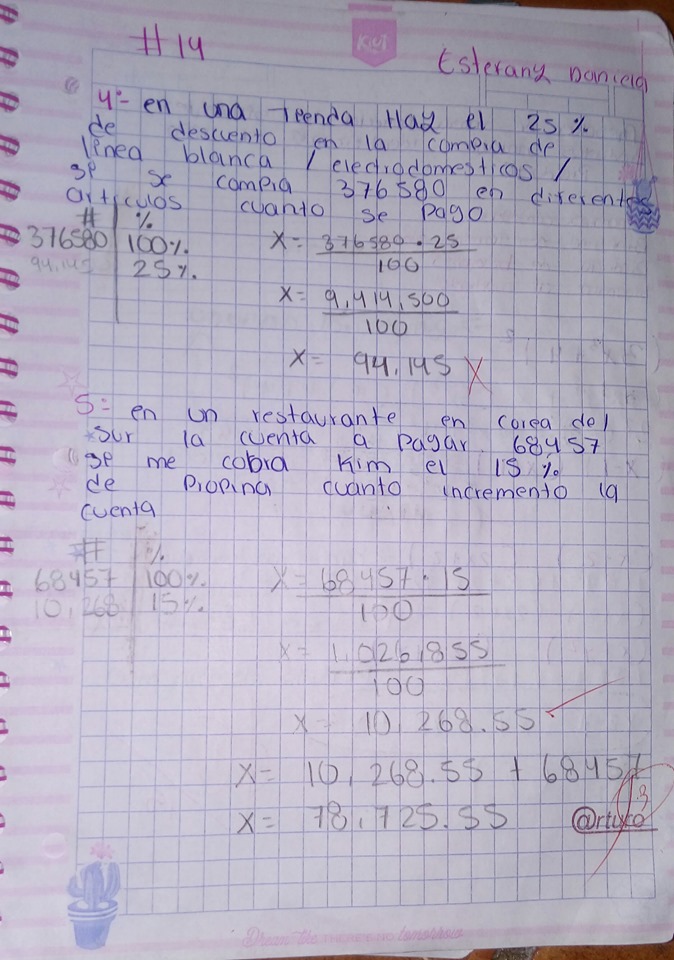 # 14
Kiut
Esterany Daniela
4º- en una Teenda Hay el 25 %
de descuento en la compra de
línea blanca / electrodomesticos /
se se compra 376580 en diferentes
articulos cuanto se pago
# %
376580 100%
94,145 25%
X= 376580 · 25
100
X= 9,414,500
100
X= 94,145 X
5= en un restaurante en corea del
sur la cuenta a pagar 68457
se me cobra Kim el 15 %
de propina cuanto incremento la
cuenta
# %
68457 100%
10,268 15%
X= 68457 · 15
100
X= 1,026,855
100
X= 10,268.55 ✓
X= 10,268.55 + 68457
X= 78,725.55
@rturo
Dream big tomorrow